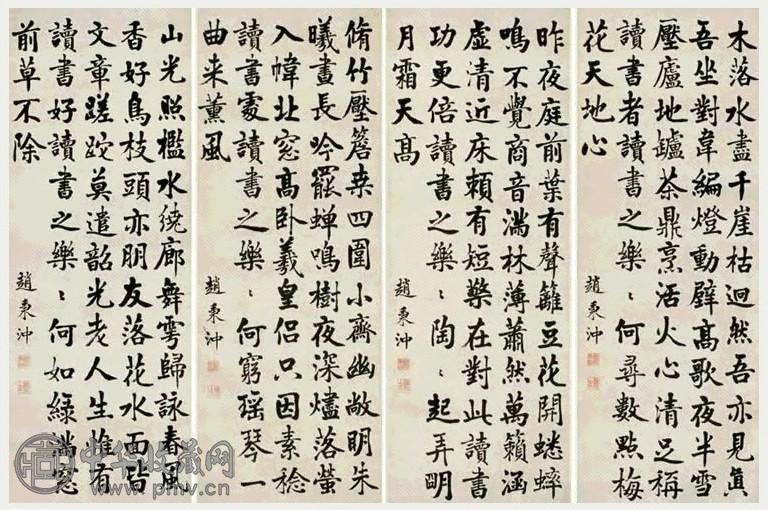 山光照檻水繞廊舞雩歸詠春風
香好鳥枝頭亦朋友落花水面皆
文章蹉跎莫遣韶光老人生惟有
讀書好讀書之樂〻何如綠滿窓
前草不除
趙秉沖
脩竹壓簷桑四圍小齋幽敞明朱
曦晝長吟罷蟬鳴樹夜深燼落螢
入幃北窓高卧羲皇侶只因素稔
讀書處讀書之樂〻何窮瑤琴一
曲来薰風
趙秉沖
昨夜庭前葉有聲籬豆花開蟋蟀
鳴不覺商音滿林薄蕭然萬籟涵
虛清近床頼有短檠在對此讀書
功更倍讀書之樂〻陶〻起弄明
月霜天高
趙秉沖
木落水盡千崖枯迥然吾亦見真
吾坐對韋編燈動壁高歌夜半雪
壓廬地罏茶鼎烹活火心清足稱
讀書者讀書之樂〻何尋數點梅
花天地心
趙秉沖
中华收藏网
www.pmv.cn